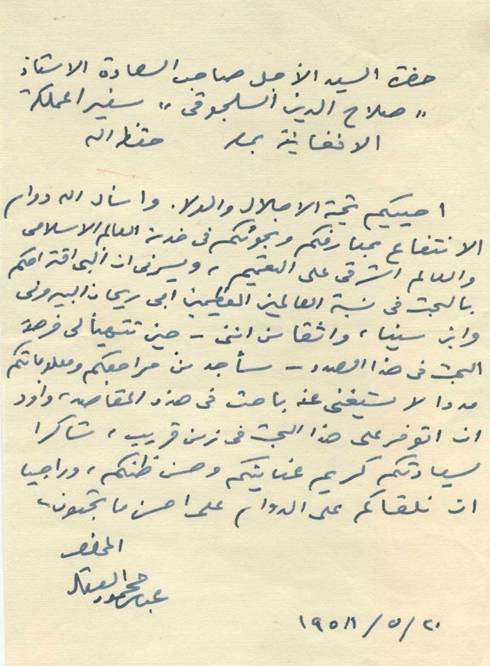 حضرة السيد الأجل صاحب السعادة الاستاذ
" صلاح الدين السلجوقى " سفير المملكة
الافغانية بمصر حفظه الله
احييكم تحية الاجلال والولاء. واسأل الله دوام
الانتفاع بمعارفكم وبحوثكم فى خدمة العالم الاسلامى
والعالم الشرقى على التعميم، ويسرنى ان ألبى اقتراحكم
بالبحث فى نسبة العالمين العظيمين ابى ريحان البيرونى
وابن سينا، واثقا من اننى - حين تتهيأ لى فرصة
البحث فى هذا الصدد - سأجد من مراجعكم ومعلوماتكم
مددا لا يستغنى عنه باحث فى هذه المقاصد، واود
ان اتوفر على هذا البحث فى زمن قريب، شاكرا
لسيادتكم كريم عنايتكم وحسن ظنكم، وراجيا
ان نلقاكم على الدوام على احسن ما تحبون،
المخلص
عباس محمود العقاد
٢٠/٥/١٩٥٨